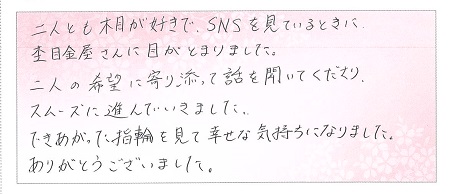 二人とも木目が好きで、SNSを見ているときに
杢目金屋さんに目がとまりました。
二人の希望に寄り添って話を聞いてくださり、
スムーズに進んでいきました。
できあがった指輪を見て幸せな気持ちになりました。
ありがとうございました。